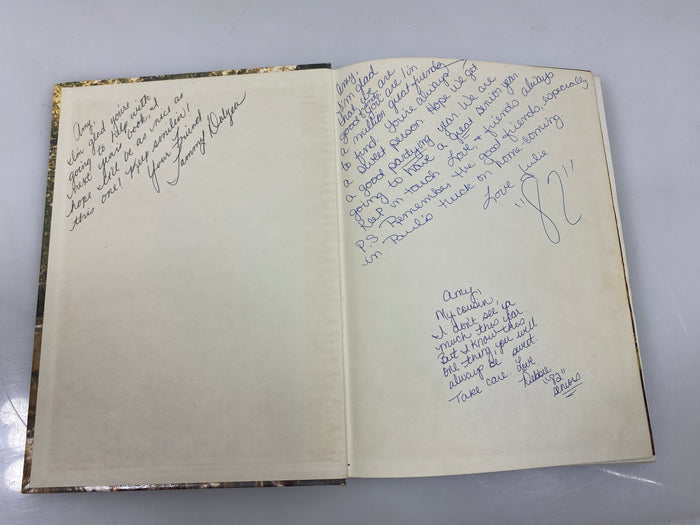 Amy
I'm glad you're
going to help with
next years book, I
hope it'll be as nice as
this one! Keep smilin'!
Your Friend
Tammy
Amy,
I'm glad
that we are
good friends
a million great friends
to find. You're always
a sweet person. Hope we get
a good partying year. We are
going to have a great senior year
Keep in touch Love & friends always
P.S. Remember the good friends, especially
in Paul's truck on home-coming
Love Julie
"82"
Amy,
My cousin,
I don't see ya
much this year
But I know this
one thing, you will
always be sweet.
Take care Love
Debbie
"82"
seniors